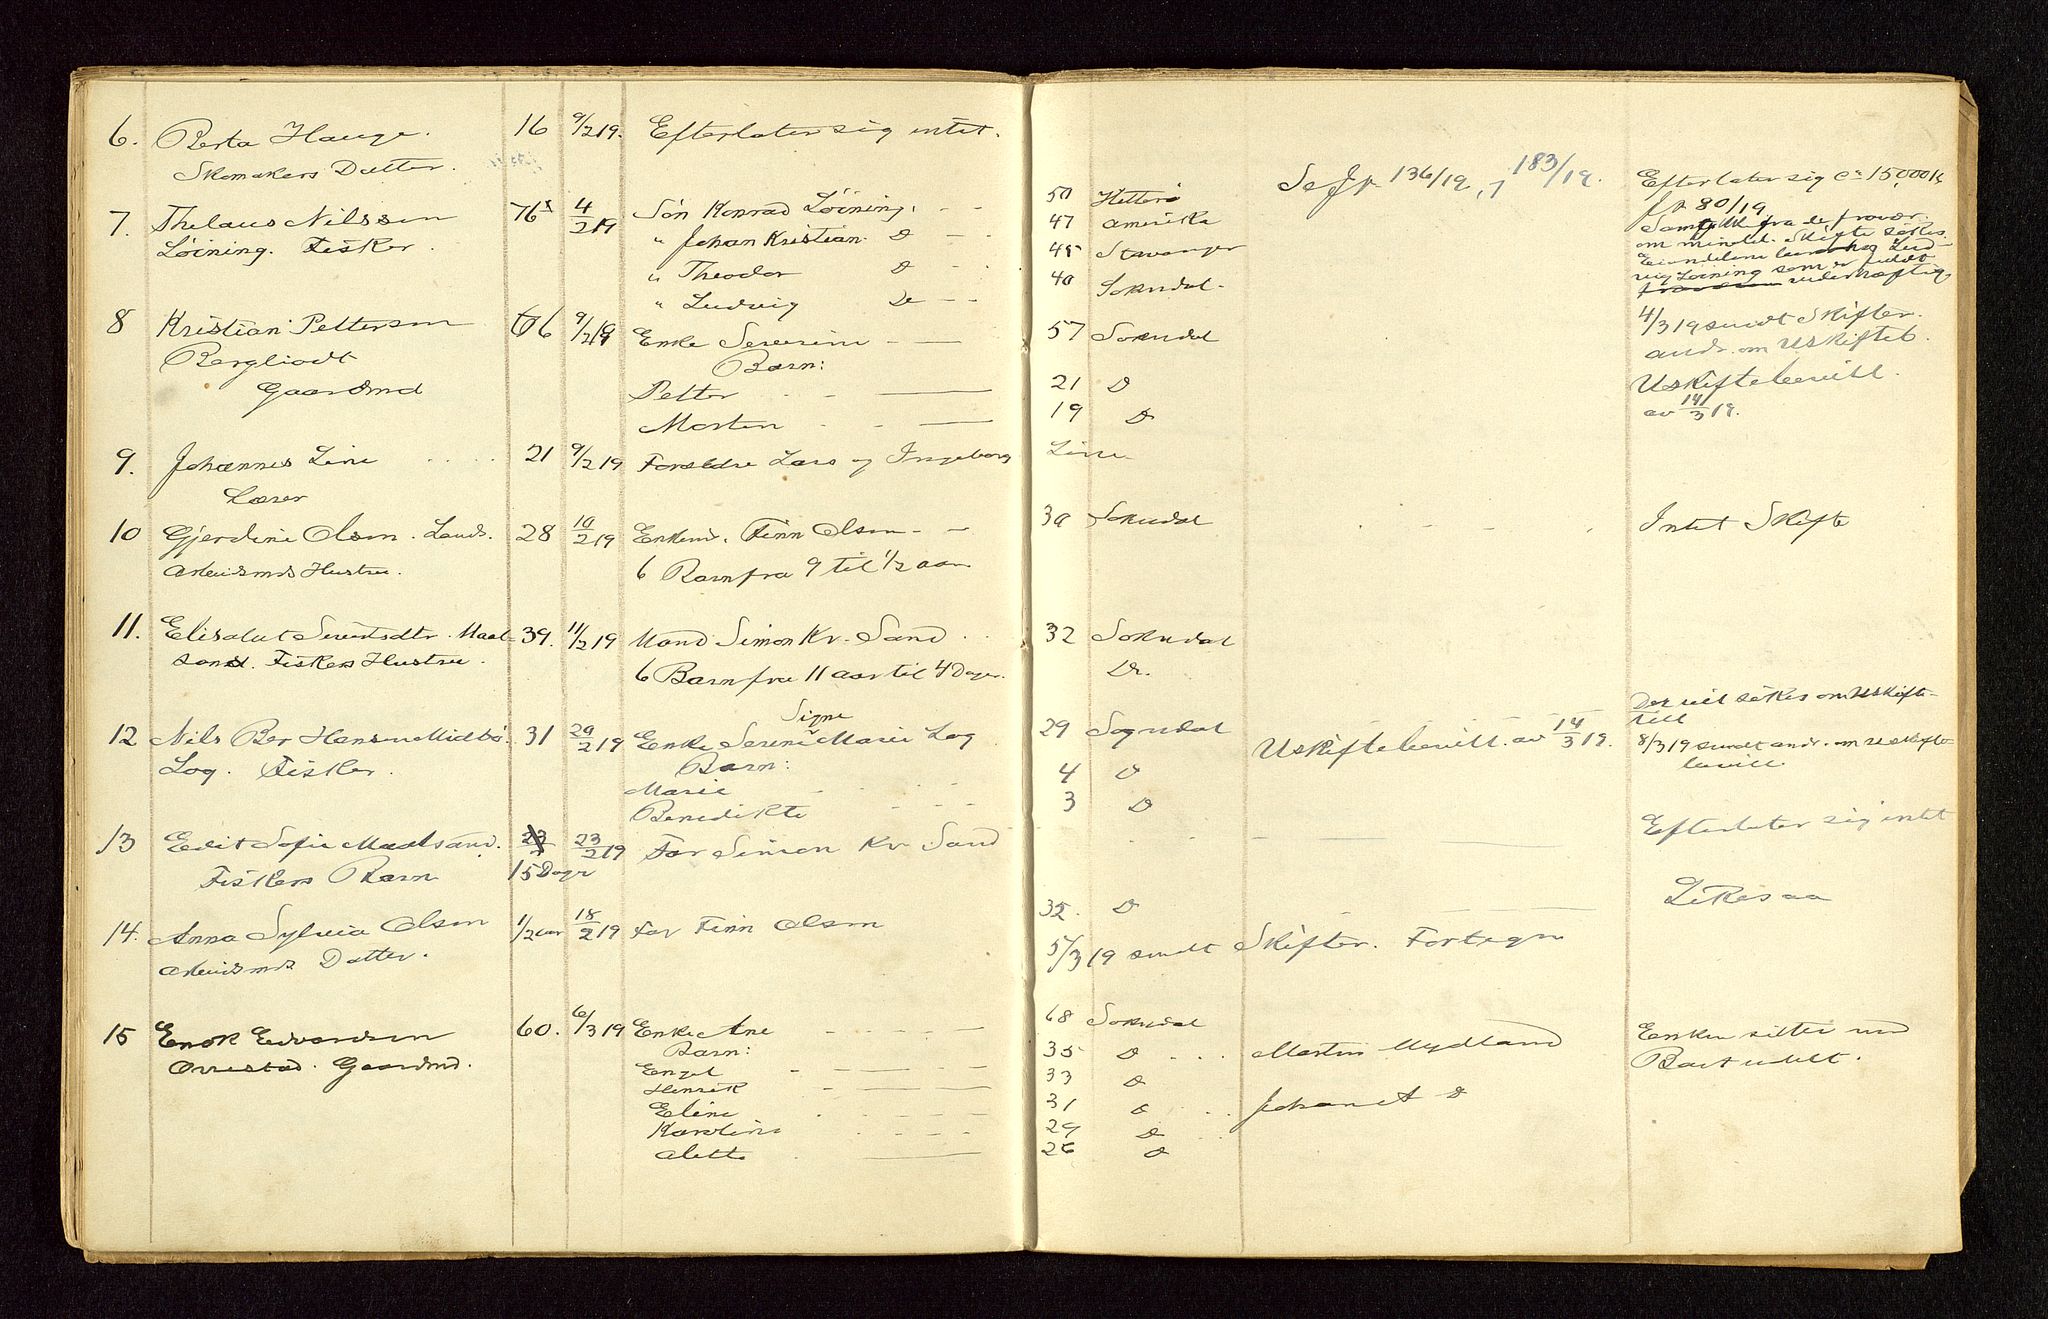 6. Berta Hauge. 16 9/2 19. Efterlater sig intet.
Skomakers Datter.
7. Thelaus Nilssen 76 4/2 19 Søn Konrad Løining. - -
Løining. Fisker. " Johan Kristian D - -
" Theodor D - -
" Ludvig Do - -
8 Kristian Pettersen 66 9/2 19 Enke Severine - —
Bergliodt Barn:
Gaardmd Petter - - —
Morten - - —
9. Johannes Line 21 9/2 19 Forældre Lars og Ingeborg
Læser
10 Gjerdine Olsen. Lands. 28 10/2 19 Enkemd. Finn Olsen - -
Arbeidsmds Hustru. 6 Barn fra 9 til 1/2 aar
11. Elisabet Severtsdtr. Maal- 39. 11/2 19 Mand Simon Kv. Sand
sand. Fiskers Hustru. 6 Barn fra 11 aar til 4 Dager.
12 Nils Ber Hansen Midbø 31 20/2 19 Enke Serine Signe Marie Log
Log. Fisker. Barn:
Marie - - -
Benedikte - - -
13 Edit Sofie Maalsand. 23/2 19 Far Simon Kv. Sand
Fiskers Barn 15 Dage
14. Anna Sylvia Olsen 1/2 aar 18/2 19 Far Finn Olsen
Arbeidsmds Datter.
15 Enok Edvardsen 60. 6/3 19 Enke Ane - - - -
Ovrestad. Gaardmd. Barn:
Engel - - —
Henrik - —
Eline - - - -
Karoline - - - -
Alette —
50 Hitterø Se Jp 136/19, 183/19. Efterlater sig ca 15,000 Kr
Jp 80/19
47 Amerika
45 Stavanger om mindel. Skifte søkes
40 Sokndal.
57 Sokndal 4/3 19 sendt Skifter.
andr. om Uskiftet.
21 D Uskiftebevill.
19 D av 14/3 19.
Line
30 Sokndal - - - Intet Skifte
32 Sokndal
Do.
Der vil søkes om Uskifte-
till
29 Sogndal Uskiftebevill. av 14/3 19. 8/3 19 sendt andr. om uskifte-
bevill.
4 D
3 D
- — — Efterlater sig intet
35. D — Likesaa
5/3 19 sendt Skifter. Fortegn
68 Sokndal Enken sitter med
35 D . . . Martin Mydland Boet udelt.
33 D
31 D . . . Johan A D
29 D . .
26 D